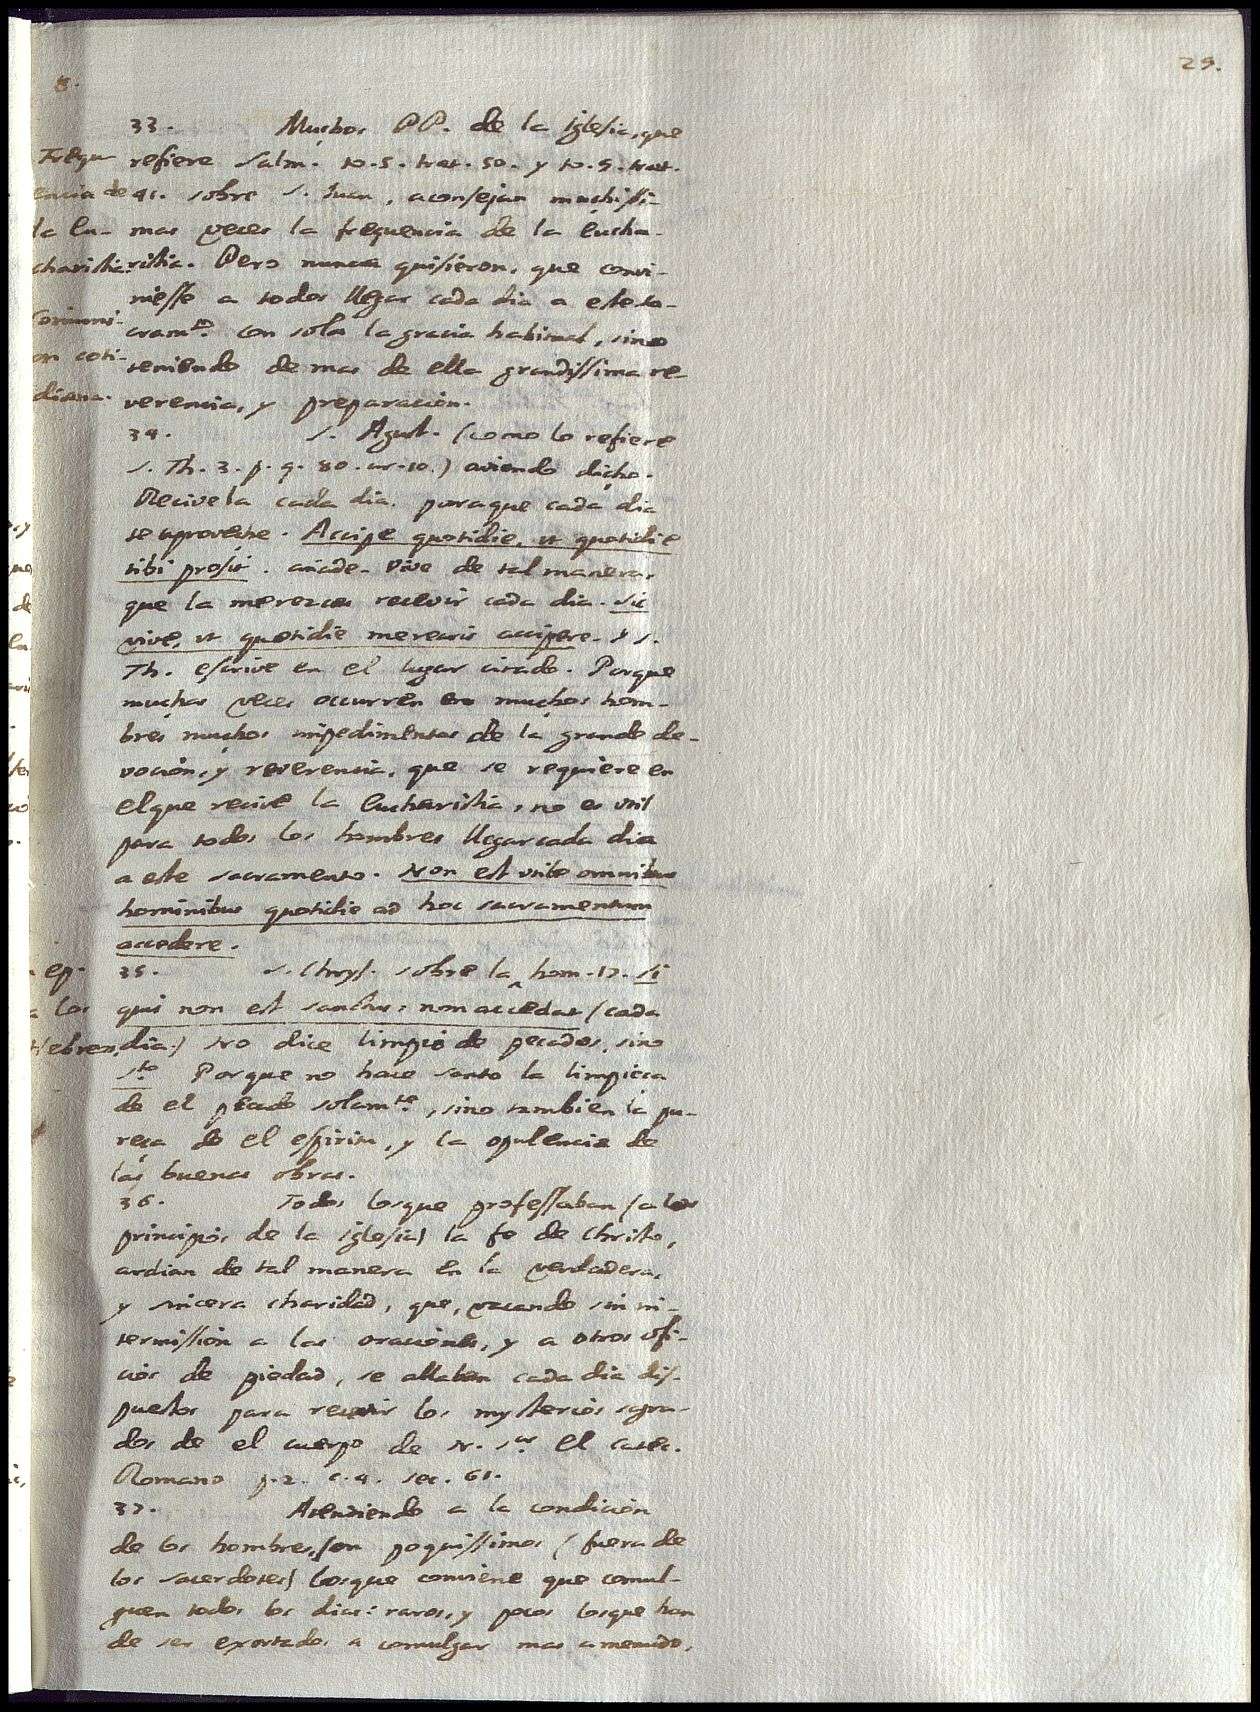 29.
8.
33. Muchos PP. de la Iglesia, que
refiere Salm. to. 5. trat. 50. y to. 9. trat.
41. sobre S. Juan, aconsejan muchissi-
mas veces la frequencia de la Eucha-
ristia. Pero nunca quisieron, que convi-
niesse a todos llegar cada dia a este sa-
cramto. con sola la gracia habitual, sino
teniendo de mas de ella grandissima re-
verencia, y preparacion.
Frequ
encia de
la Eu-
charistia.
Comuni-
on coti-
diana.
34. S. Agust. (como lo refiere
S. Th. 3. p. q. 80. ar. 10.) aviendo dicho.
Recivela cada dia. paraque cada dia
te aproveche. Accipe quotidie, ut quotidie
tibi prosit. añade. Vive de tal manera,
que la merezcas recevir cada dia. Sic
vive, ut quotidie merearis accipere. Y S.
Th. escrive en el lugar citado. Porque
muchas veces occurren en muchos hom-
bres muchos impedimentos de la grande de-
vocion, y reverencia, que se requiere en
el que recive la Eucharistia, no es util
para todos los hombres llegar cada dia
a este sacramento. Non est utile omnibus
hominibus quotidie ad hoc sacramentum
accedere.
35. S. Chrys. sobre la ^ hom. 17. Si
ep.
a los
Hebreos,
qui non est sanctus, non accedat (cada
dia) No dice limpio de pecados, sino
sto. Porque no hace santo la limpieça
de el pecado solamte., sino tambien la pu-
reça de el espiritu, y la opulencia de
las buenas obras.
36. Todos losque professaban (a los
principios de la iglesia) la fe de Christo,
ardian de tal manera en la verdadera,
y sincera charidad, que, vacando sin in-
termission a las oraciones, y a otros ofi-
cios de piedad, se allaban cada dia dis-
puestos para recevir los mysterios sagra-
dos de el cuerpo de N. Sor. El catec.
Romano p. 2. c. 4. sec. 61.
37. Atendiendo a la condicion
de los hombres, son poquissimos (fuera de
los sacerdotes) losque conviene que comul-
guen todos los dias: raros, y pocos losque han
de ser exortados a comulgar mas amenudo,